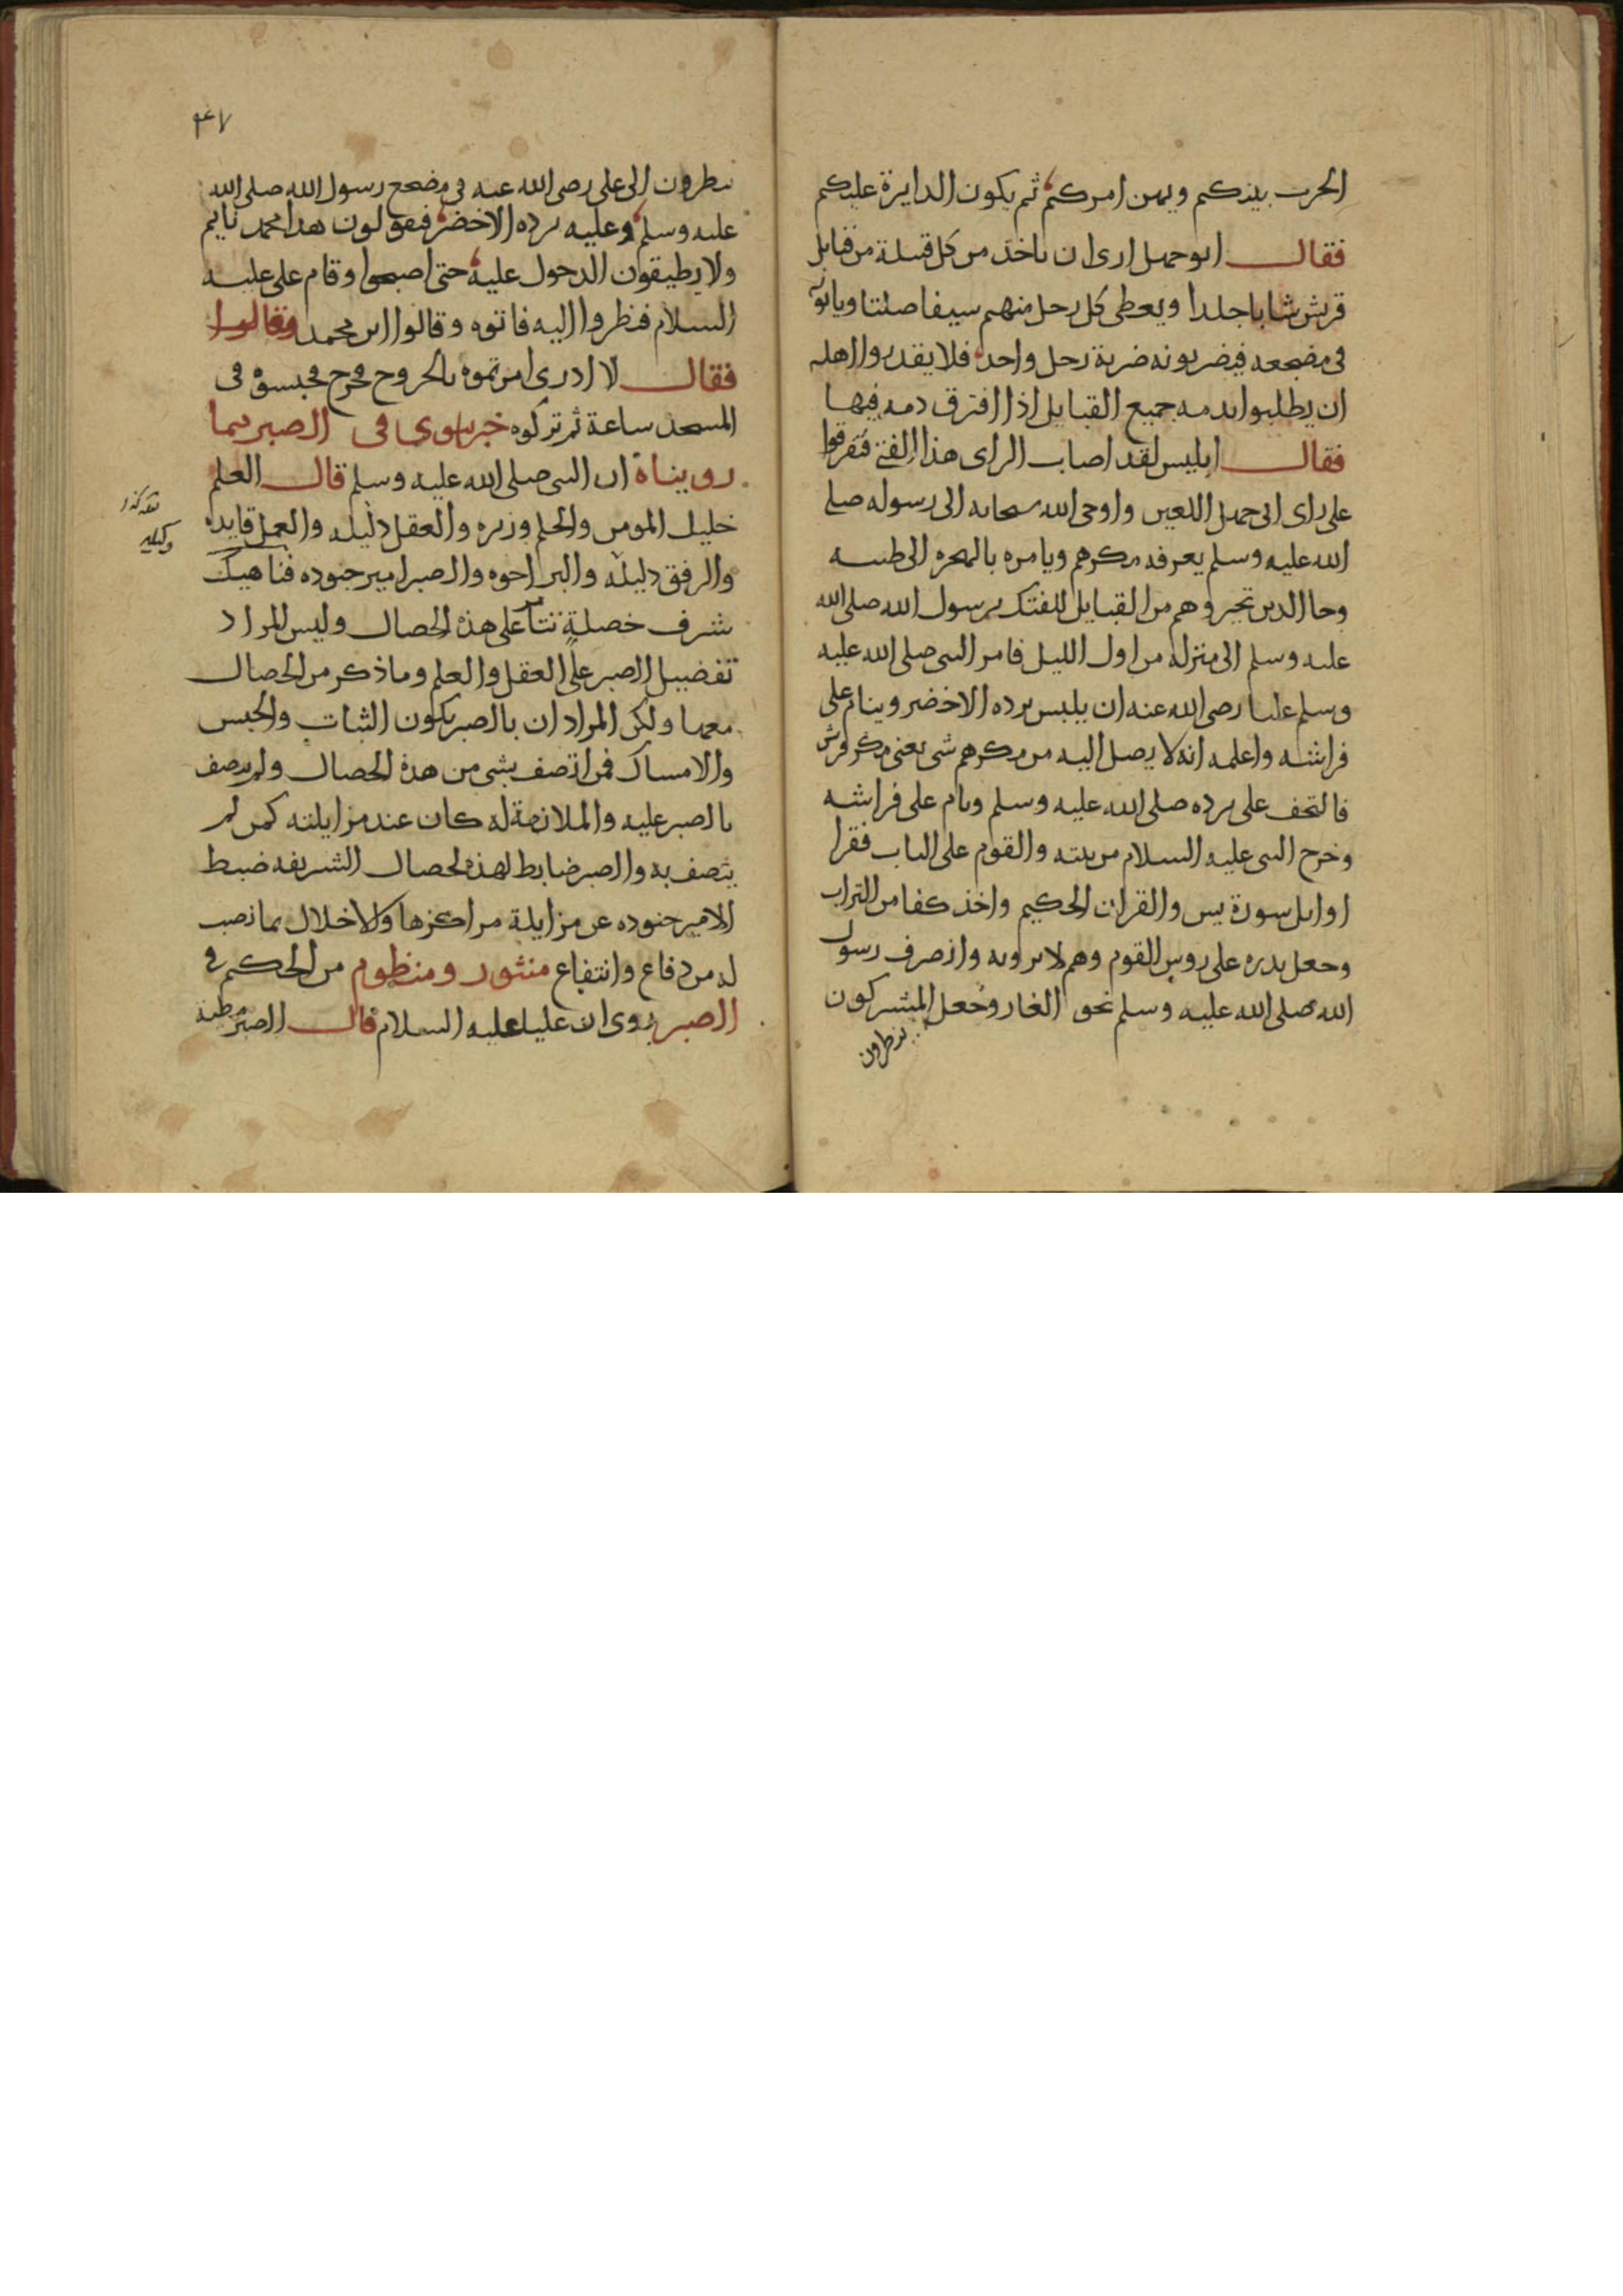 الحرب بينكم ويهن امركم ثم يكون الدايرة عليكم
فقال ابو جهل ارى ان ناخذ من كل قبيلة من قبايل
قريش شابا جلدا ويعطى كل رجل منهم سيفا صلتا وياتوه
في مضجعه فيضربونه ضربة رجل واحد فلا يقدروا اهله
ان يطلبوا بدمه جميع القبايل اذا افترق دمه فيها
فقال ابليس لقد اصاب الراى هذا الفتى فتفرقوا
على راى ابي جهل اللعين واوحى الله سبحانه الى رسوله صلى
الله عليه وسلم يعرفه مكرهم ويامره بالهجرة الى طيبه
وجا الذين تخيروهم من القبايل للفتك برسول الله صلى الله
عليه وسلم الى منزله من اول الليل فامر النبي صلى الله عليه
وسلم عليا رضي الله عنه ان يلبس برده الاخضر وينام على
فراشه واعلمه انه لا يصل اليه من مكرهم شي يعني مكر قريش
فالتحف على برده صلى الله عليه وسلم ونام على فراشه
وخرج النبي عليه السلام من بيته والقوم على الباب فقرا
اوايل سورة يس والقران الحكيم واخذ كفا من التراب
وجعل يذره على روس القوم وهم لا يرونه وانصرف رسول
الله صلى الله عليه وسلم نحو الغار وجعل المشركون
ينظرون
٤٧
ينظرون الى على رضي الله عنه في مضجع رسول الله صلى الله
عليه وسلم وعليه برده الاخضر فيقولون هذا محمد نايم
ولا يطيقون الدخول عليه حتى اصبحوا وقام على عليه
السلام فنظروا اليه فاتوه وقالوا اين محمد فقالوا
فقال لا ادرى امرتموه بالخروج فخرج فحبسوه في
المسجد ساعة ثم تركوه خبر نبوى في الصبر فيما
رويناه ان النبي صلى الله عليه وسلم قال العلم
خليل المومن والحلم وزيره والعقل دليله والعمل قايده
والرفق دليله والبر اخوه والصبر امير جنوده فناهيك
بشرف خصلة تتامر على هذه الخصال وليس المراد
تفضيل الصبر على العقل والعلم وما ذكر من الخصال
معهما ولكن المراد ان بالصبر يكون الثبات والحبس
والامساك فمن اتصف بشي من هذه الخصال ولم يتصف
بالصبر عليه والملازمة له كان عند مزايلته كمن لم
يتصف به والصبر ضابط لهذه الخصال الشريفه ضبط
الامير جنوده عن مزايلة مراكزها والاخلال بما نصب
له من دفاع وانتفاع منثور ومنظوم من الحكم في
الصبر روى ان عليا عليه السلام قال الصبر مطية